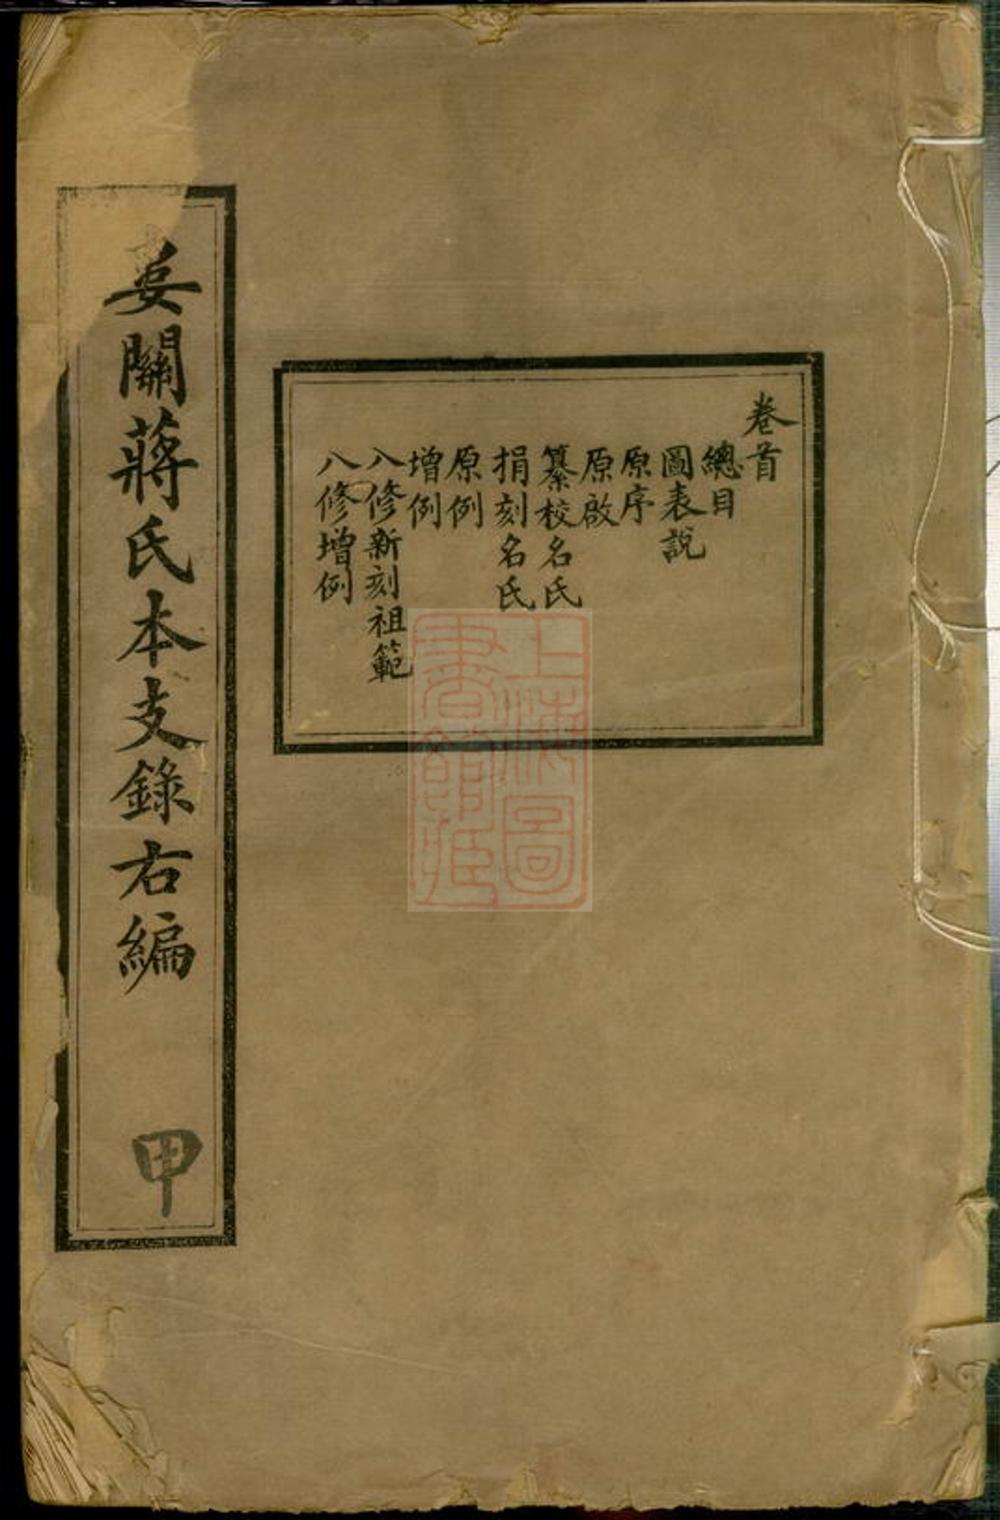 卷首
總目
圖表說
原序
原啟
纂校名氏
捐刻名氏
原例
增例
八修新刻祖範
八修增例
婁關蔣氏本支錄右編 甲
上海圖
書館藏